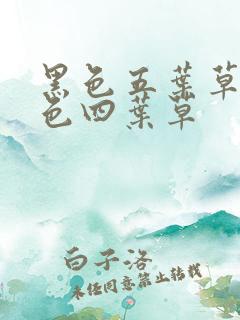 黑色五葉草
色四葉草
白子洛
未经同意禁止转载